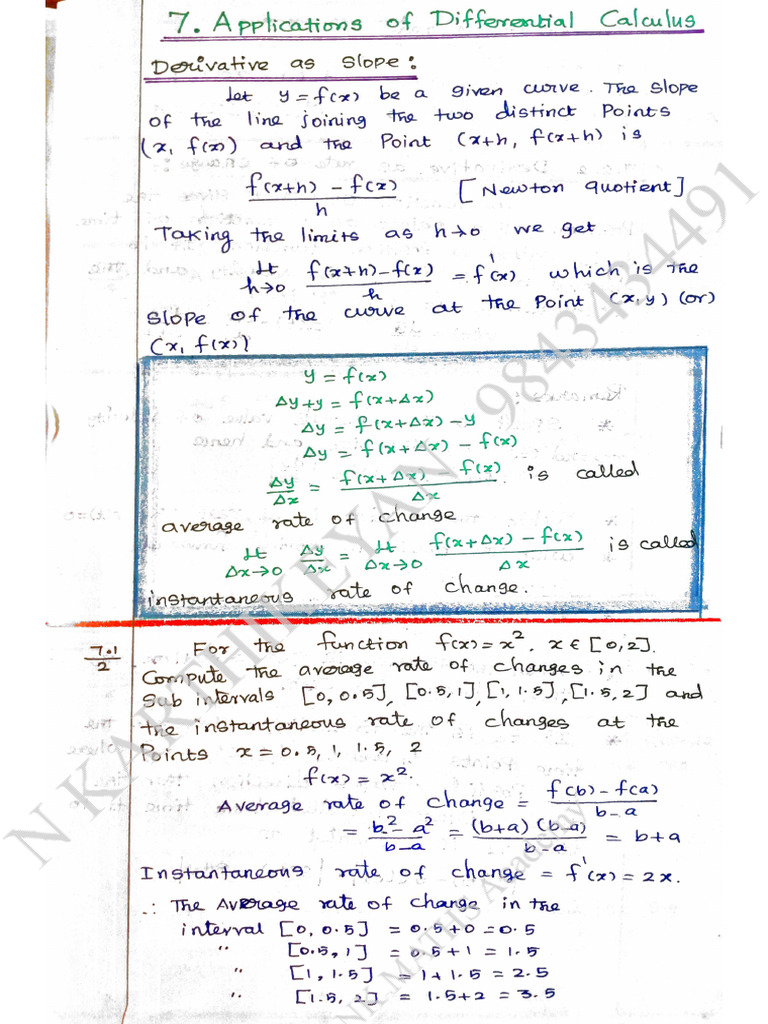 7. Applications of Differential Calculus
Derivative as slope:
Let y = f(x) be a given curve. The slope
of the line joining the two distinct Points
(x, f(x)) and the Point (x+h, f(x+h) is
f(x+h) - f(x) / h [Newton quotient]
Taking the limits as h→0 we get
lt h→0 f(x+h) - f(x) / h = f'(x) which is the
slope of the curve at the Point (x,y) (or)
(x, f(x))
y = f(x)
Δy+y = f(x+Δx)
Δy = f(x+Δx) - y
Δy = f(x+Δx) - f(x)
Δy/Δx = f(x+Δx) - f(x) / Δx is called
average rate of change
lt Δx→0 Δy/Δx = lt Δx→0 f(x+Δx) - f(x) / Δx is called
instantaneous rate of change.
7.1/2 For the function f(x) = x², x ∈ [0,2].
Compute the average rate of changes in the
Sub intervals [0, 0.5], [0.5, 1], [1, 1.5], [1.5, 2] and
the instantaneous rate of changes at the
Points x = 0.5, 1, 1.5, 2
f(x) = x².
Average rate of change = f(b) - f(a) / b-a
= b² - a² / b-a = (b+a)(b-a) / b-a = b+a
Instantaneous rate of change = f'(x) = 2x.
∴ The Average rate of change in the
interval [0, 0.5] = 0.5+0 = 0.5
" [0.5, 1] = 0.5+1 = 1.5
" [1, 1.5] = 1+1.5 = 2.5
" [1.5, 2] = 1.5+2 = 3.5
N KARTHIKEYAN 9843434491
NK MATHS Academy